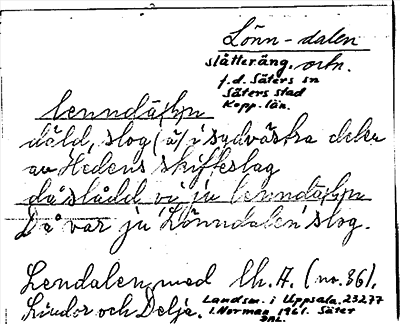 Lönn-dalen
slåtteräng. ortn.
f.d. Säters sn
Säters stad
Kopp. län.
däld, slog (å) i sydvästra delen
av Hedens skifteslag
då slådd vi ju
Då var ju Lönndalen slog.
Lendalen, med lh. A. (nr. 36),
Lindor och Delja.
Landsm. i Uppsala. 23277
I. Norman 1961. Säter
DAL.